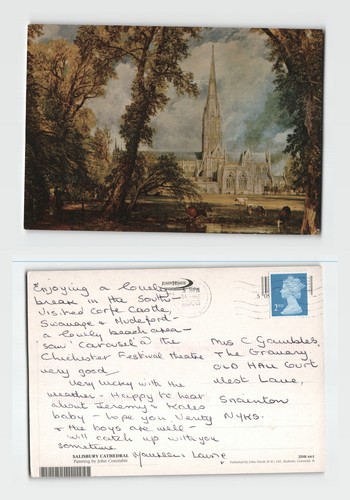 Enjoying a lovely
break in the South -
Visited Corfe Castle,
Swanage & Mudeford -
a lovely beach area -
'saw' Carousel @ the
Chichester Festival theatre
very good -
Very lucky with the
weather - Happy to hear
about Jeremy & Kates
baby - hope you Verity
& the boys are well -
will catch up with you
sometime
Laurie
Mrs C Gambles,
The Granary,
OLD HALL Court
West Lane,
Snainton
NYKS.
2ND
SALISBURY CATHEDRAL
Painting by John Constable